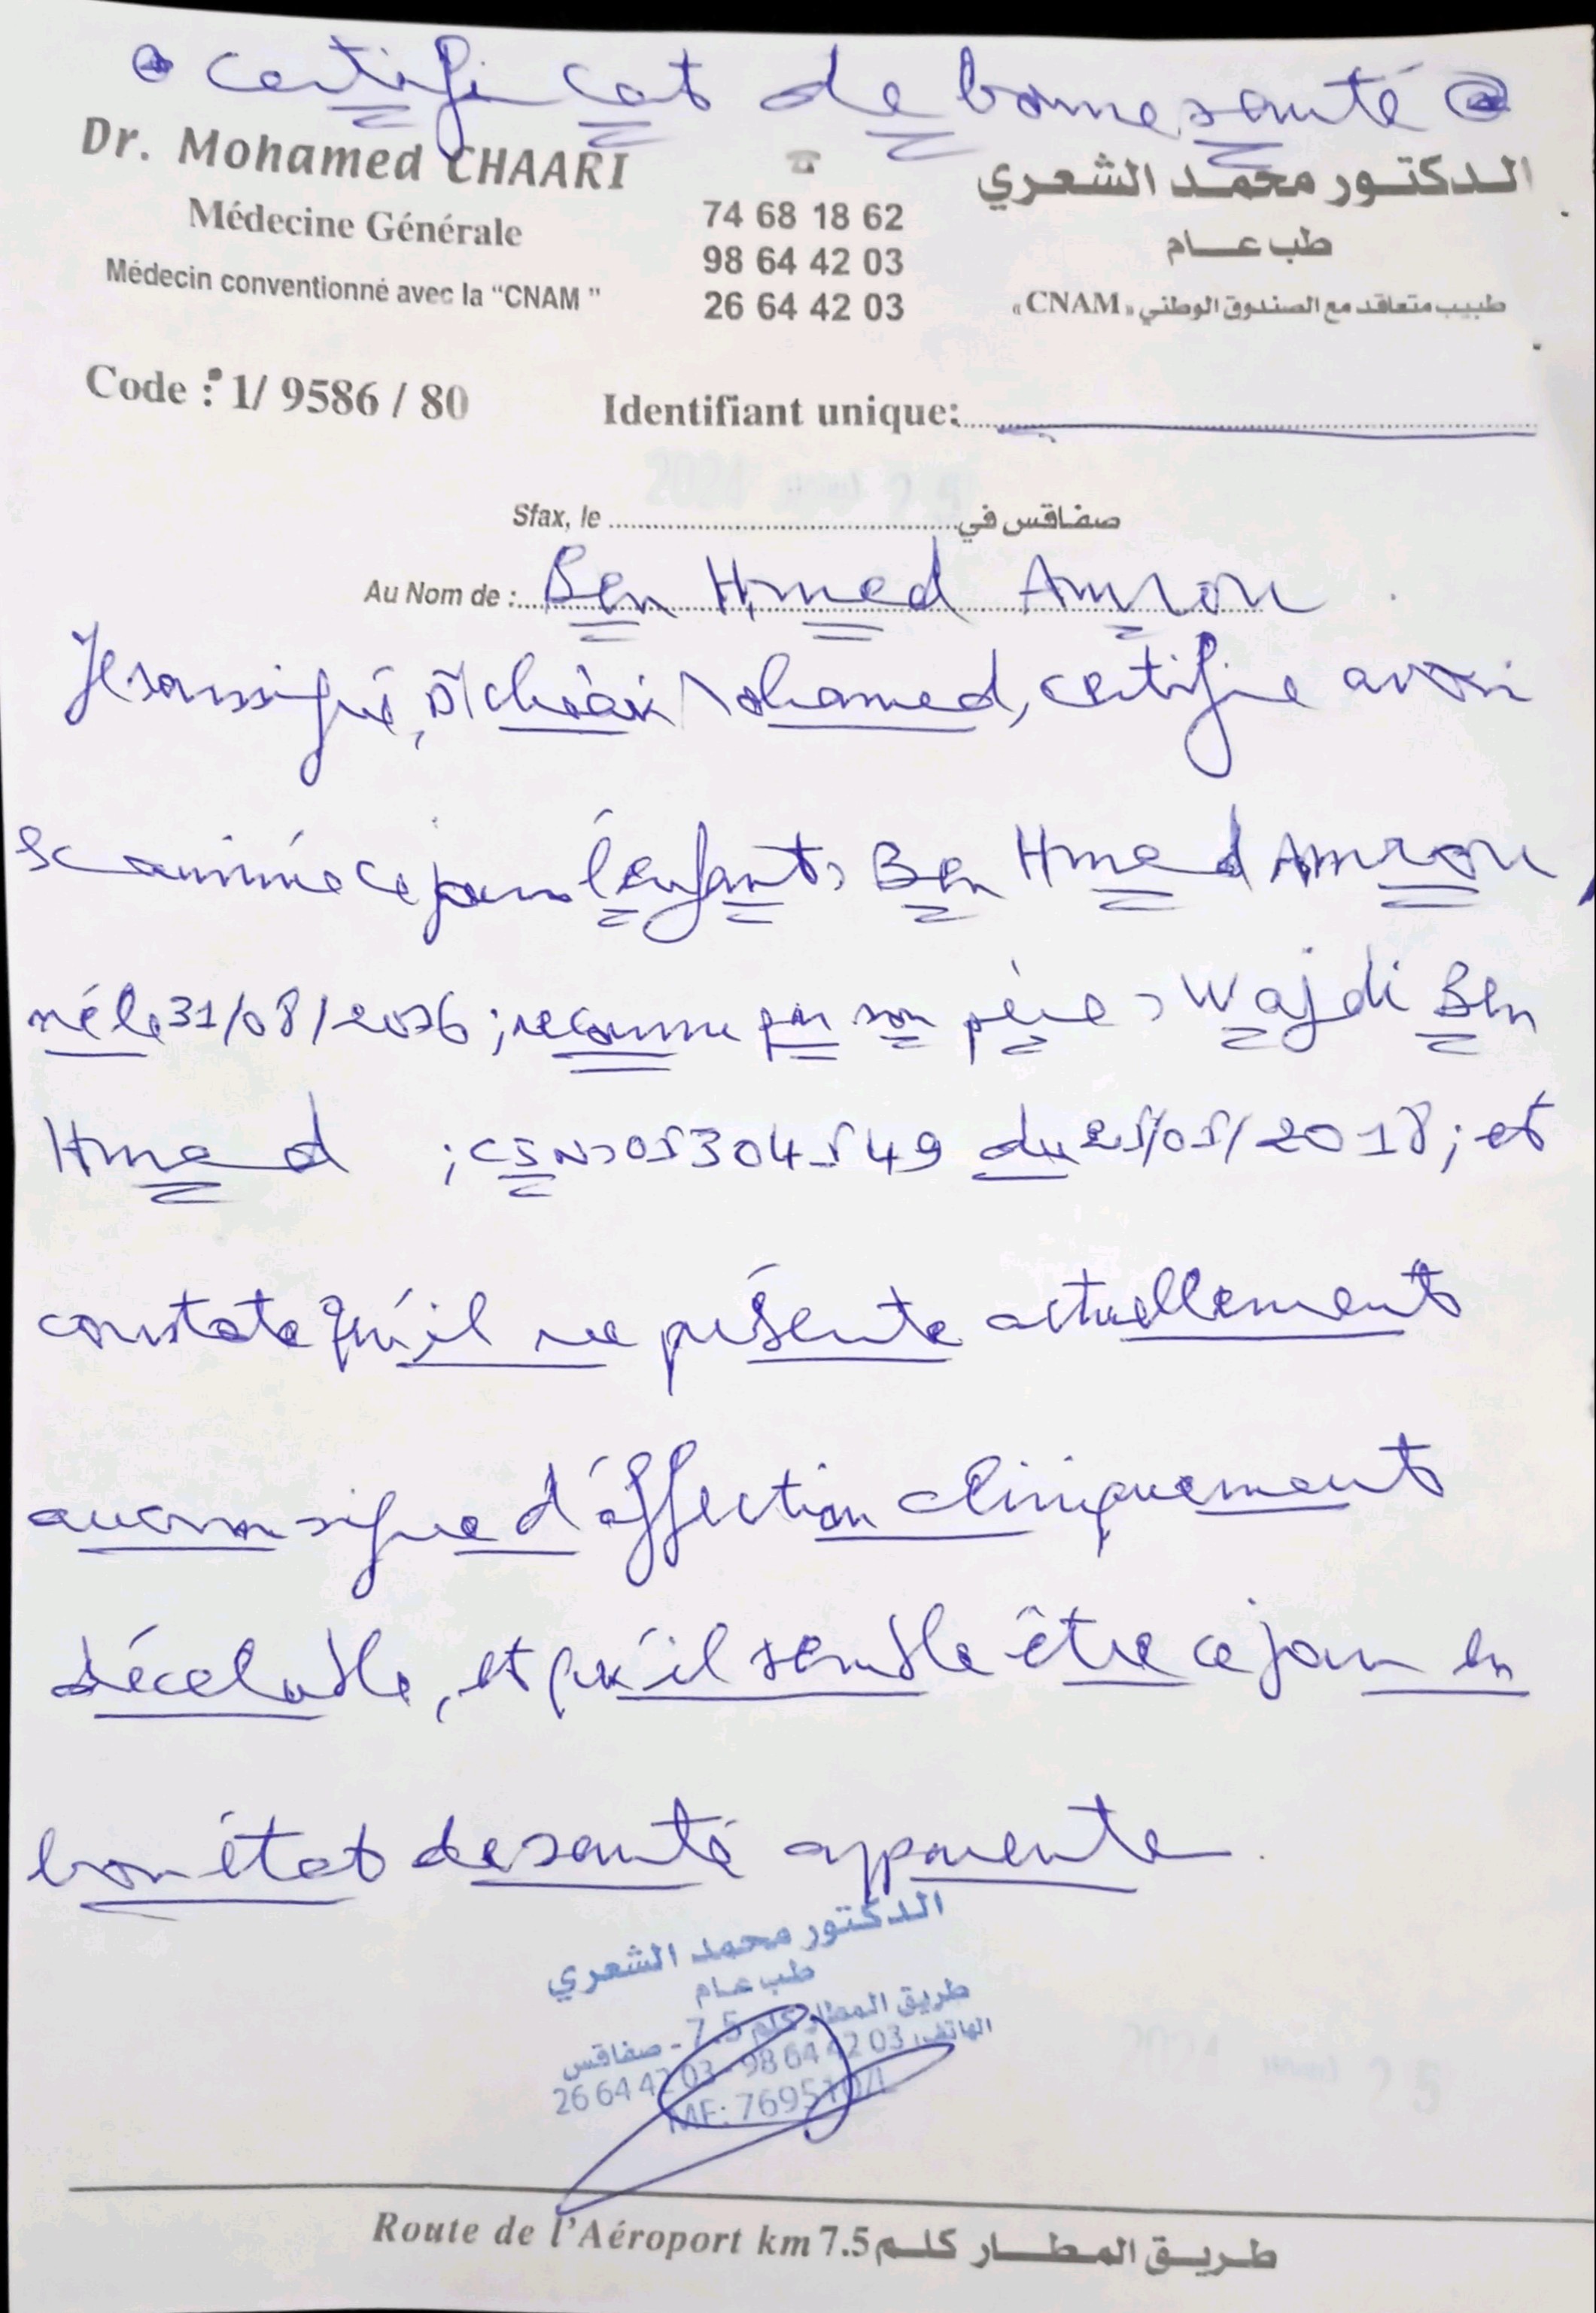 certificat de bonne santé
Dr. Mohamed CHAARI
Médecine Générale
Médecin conventionné avec la "CNAM"
74 68 18 62
98 64 42 03
26 64 42 03
الدكتور محمد الشعري
طب عام
طبيب متعاقد مع الصندوق الوطني «CNAM»
Code : 1/ 9586 / 80
Identifiant unique:
2024 25
Sfax, le صفاقس في
Au Nom de : Ben Hmed Amrou
Je soussigné, Dr Chaari Mohamed, certifie avoir
examiné ce jour l'enfant> Ben Hmed Amrou,
né le 31/08/2016; reconnu par son père > Wajdi Ben
Hmed ; CIN>05304549 du 25/05/2018; et
constate qu'il ne présente actuellement
aucun signe d'affection cliniquement
décelable, et qu'il semble être ce jour en
bon état de santé apparente.
الدكتور محمد الشعري
طب عام
طريق المطار كلم 7.5 - صفاقس
الهاتف: 03 42 64 98 - 03 42 64 26
MF: 769510/L
2024 25
Route de l'Aéroport km 7.5 طريق المطار كلم